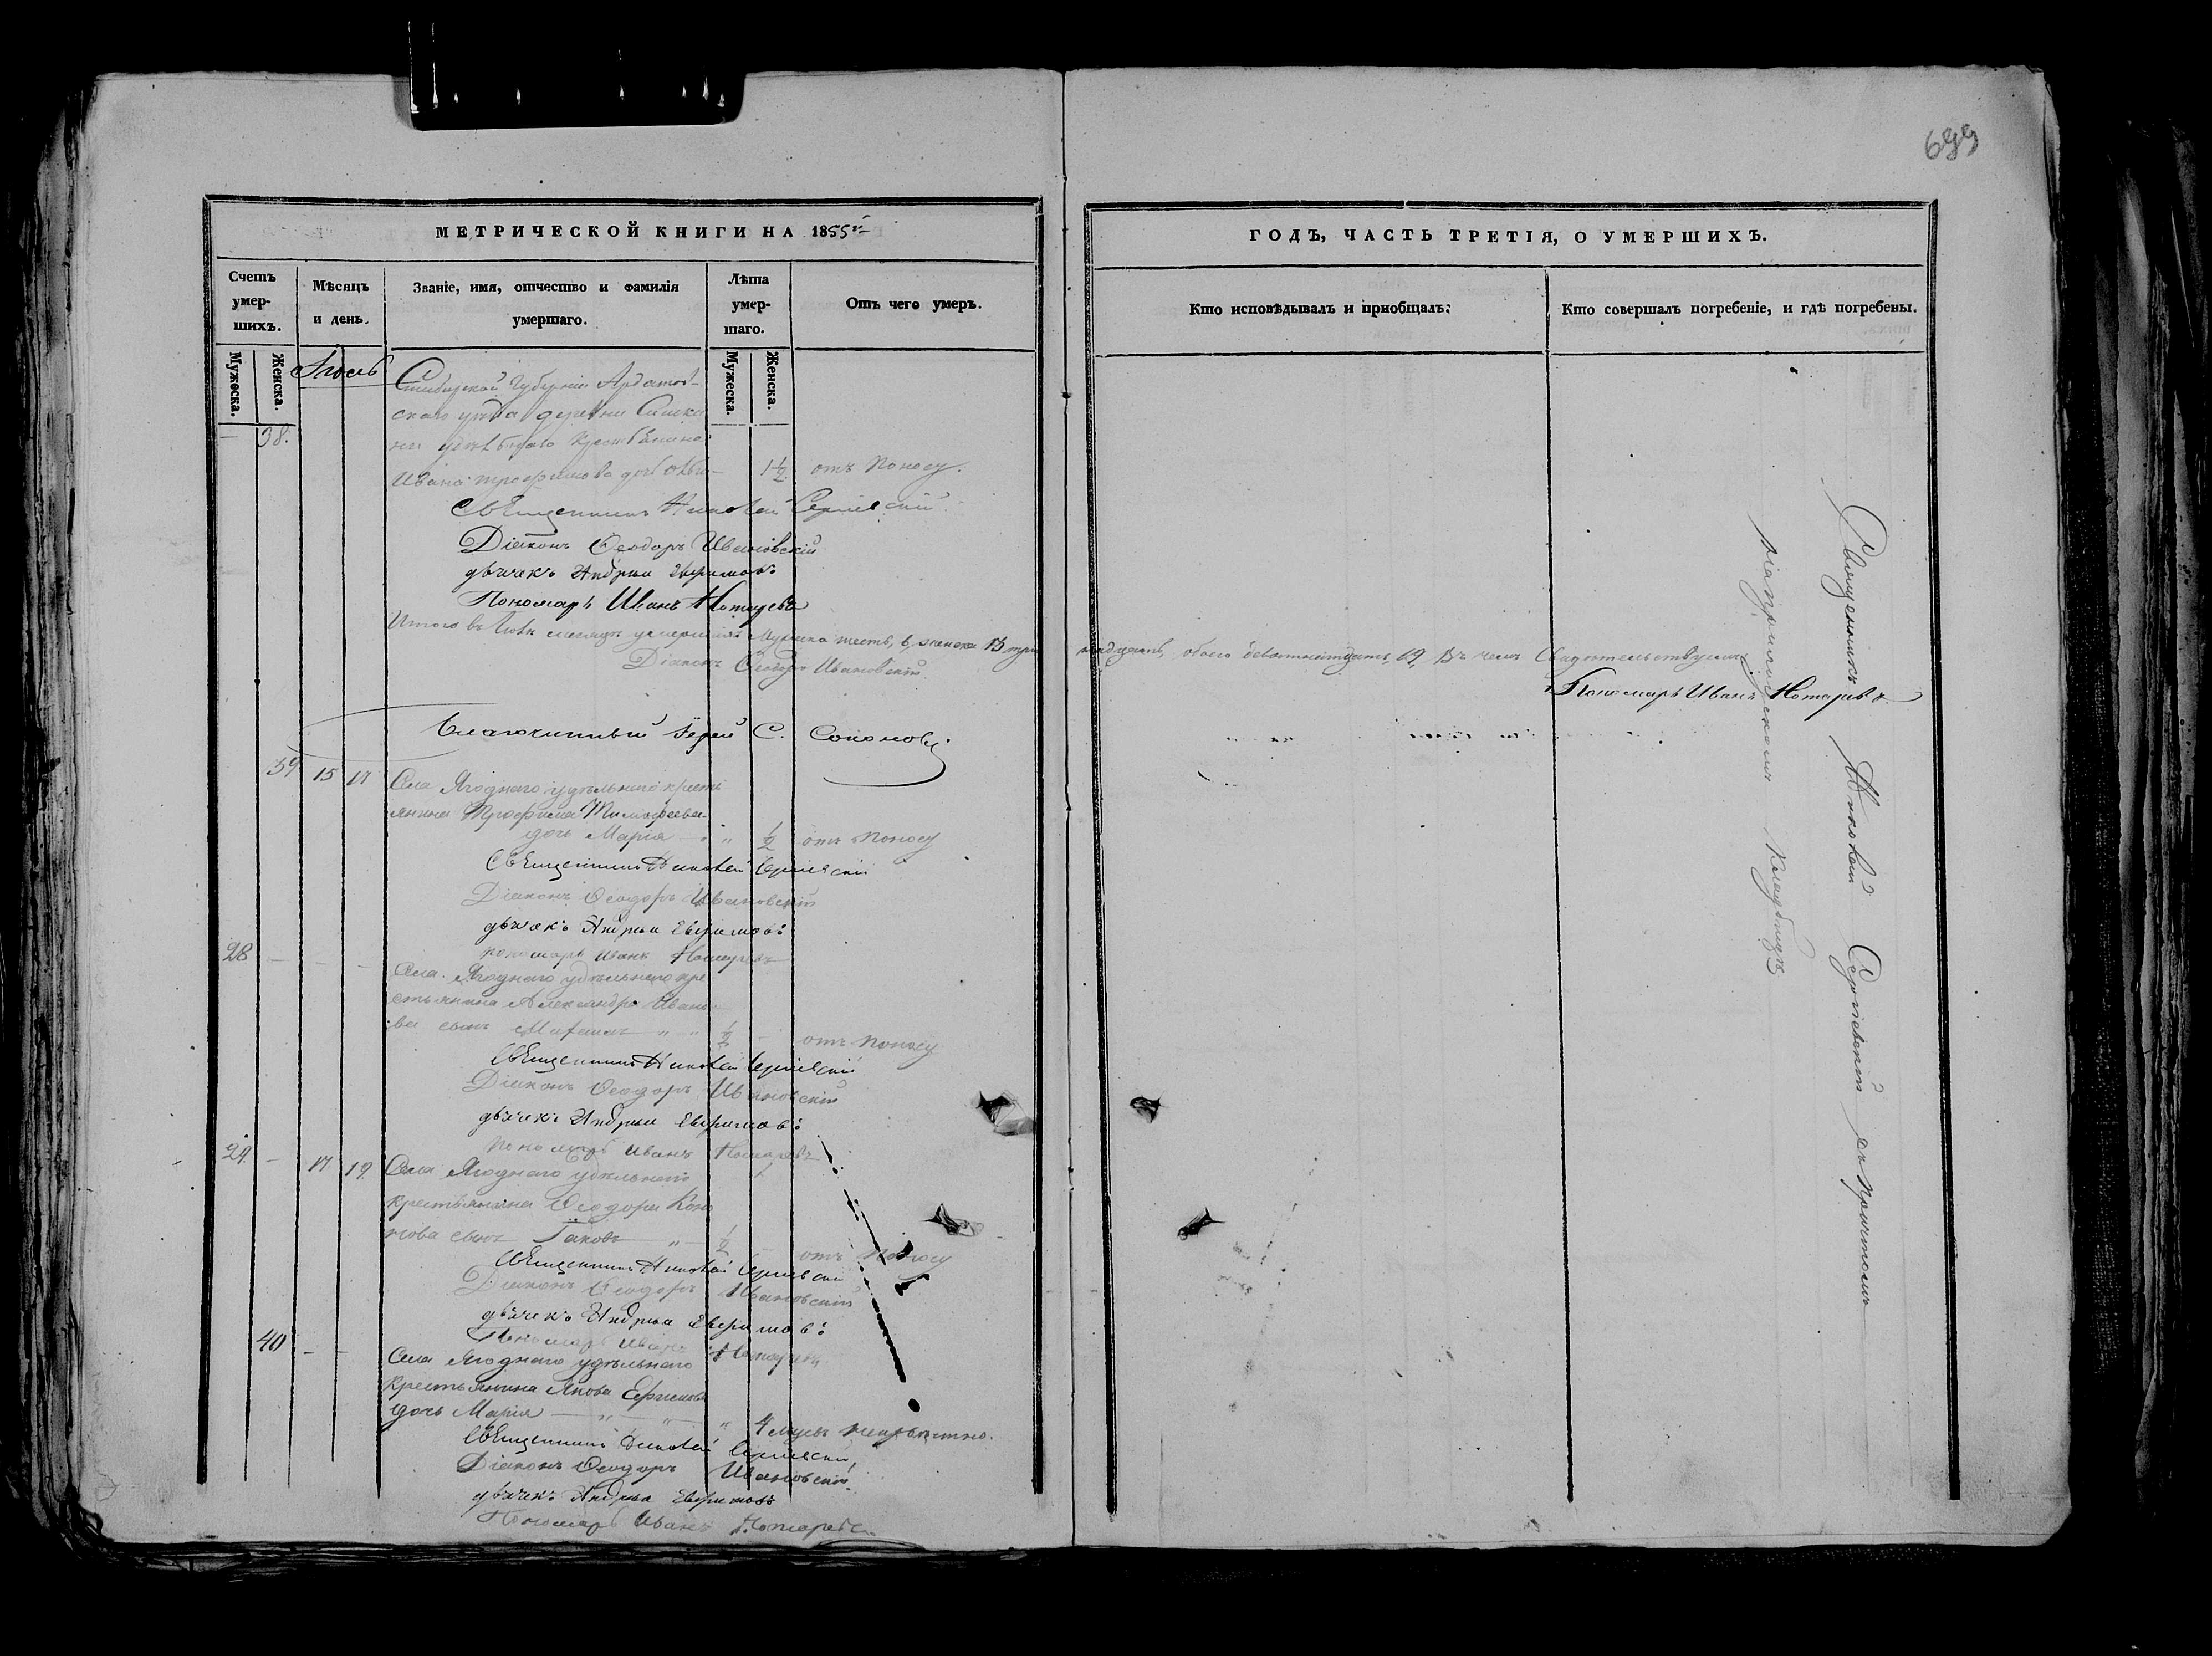 699
МЕТРИЧЕСКОЙ КНИГИ НА 1855й
Счетъ умер-шихъ.
Мѣсяцъ и день.
Званіе, имя, отчество и фамилія умершаго.
Лѣта умер-шаго.
Отъ чего умеръ.
Мужеска.
Женска.
Мужеска.
Женска.
38.
Симбирской Губерніи Ардатов-
скаго уѣзда деревни
удѣльнаго крестьянина
Ивана Трофимова дочь 1½ отъ поносу.
Священникъ Николай Сергіевскій
Діаконъ Ѳеодоръ Ивановскій
дьячекъ Андрей Ефимовъ
Пономарь Иванъ Нотаревъ
Итого въ мѣсяцѣ умершихъ мужеска шесть, 6, женска 13 три
Діаконъ Ѳеодоръ Ивановскій
Благочинный Іерей С. Соколовъ
39 15 17 Села Ягоднаго удѣльнаго кресть
янина Трофима Тимофеева
дочь Марія " " ½ отъ поносу
Священникъ Николай Сергіевскій
Діаконъ Ѳеодоръ Ивановскій
дьячекъ Андрей Ефимовъ
пономарь Иванъ Нотаревъ
28 - - -
Села Ягоднаго удѣльнаго кре
стьянина Александра Ивано
ва сынъ " " ½ - отъ поносу
Священникъ Николай Сергіевскій
Діаконъ Ѳеодоръ Ивановскій
дьячекъ Андрей Ефимовъ
пономарь Иванъ Нотаревъ
29. - 17 19 Села Ягоднаго удѣльнаго
крестьянина Ѳеодора Коно
нова сынъ Іаковъ " ½ - отъ поносу
Священникъ Николай Сергіевскій
Діаконъ Ѳеодоръ Ивановскій
дьячекъ Андрей Ефимовъ
Пономарь Иванъ Нотаревъ
40 - -
Села Ягоднаго удѣльнаго
крестьянина Якова Ефимова
дочь Марія " " " 4
Священникъ Николай Сергіевскій
Діаконъ Ѳеодоръ Ивановскій
дьячекъ Андрей Ефимовъ
Пономарь Иванъ Нотаревъ
ГОДЪ, ЧАСТЬ ТРЕТІЯ, О УМЕРШИХЪ.
Кто исповѣдывалъ и пріобщалъ:
Кто совершалъ погребеніе, и гдѣ погребены.
надцать, обоего девятнадцать, 19, Въ чемъ Свидѣтельствуемъ
Пономарь Иванъ Нотаревъ
Священникъ Николай Сергіевскій съ причтомъ
на приходскомъ кладбищѣ